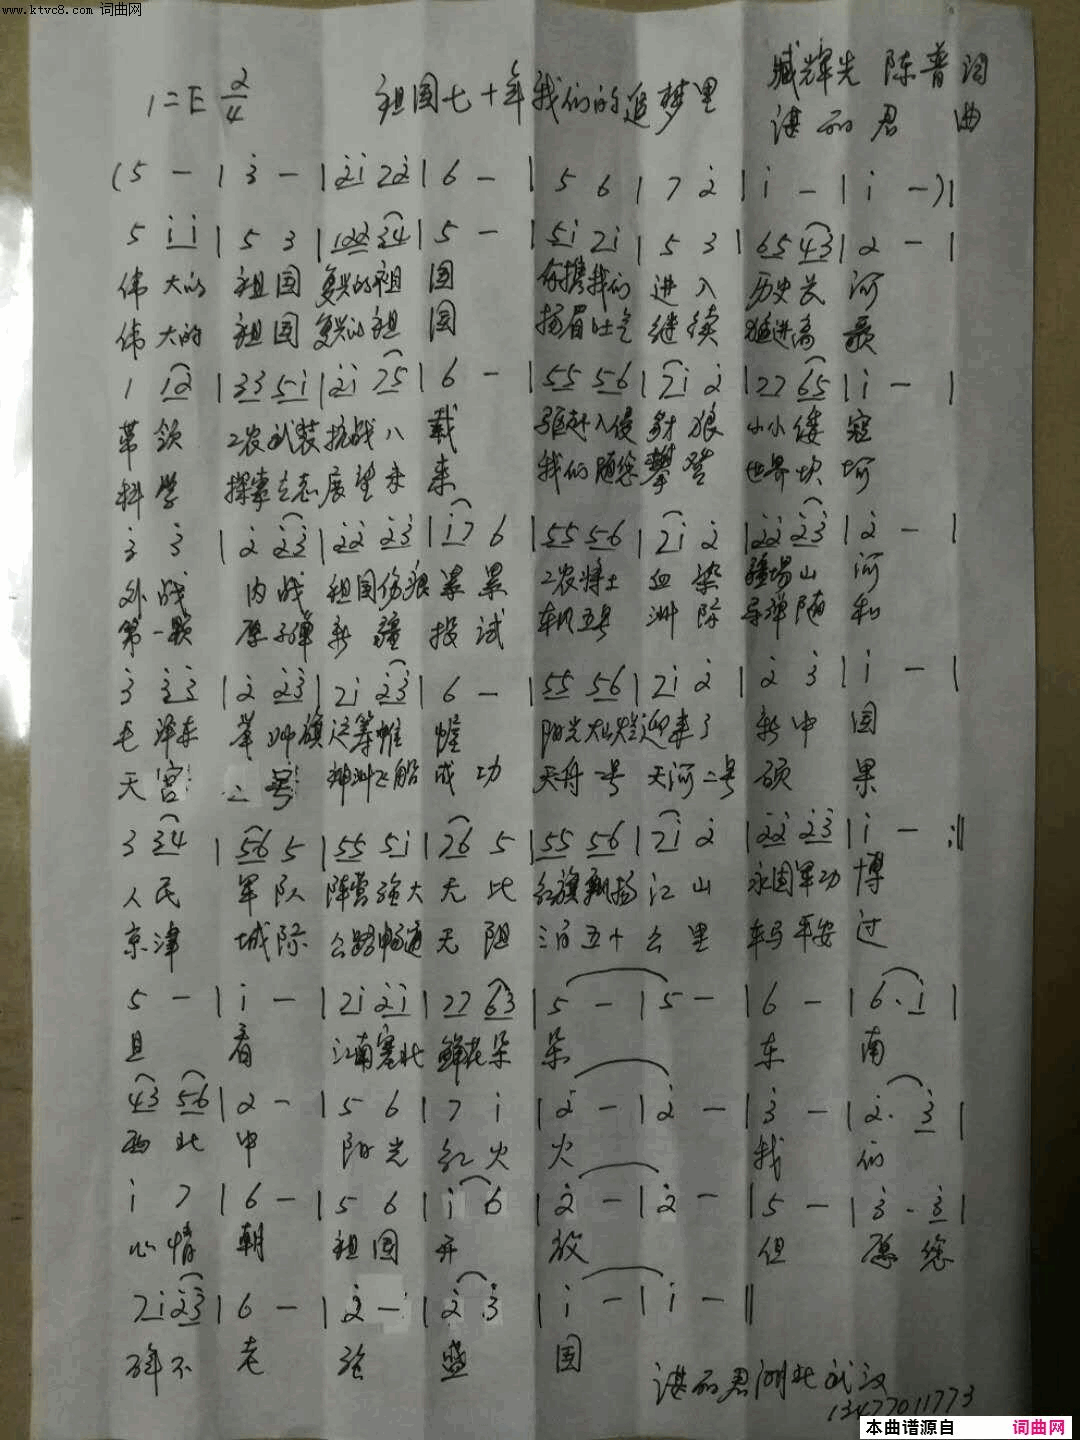 www.ktvc8.com 词曲网
1=E 2/4 祖国七十年我们的追梦里 臧辉先 陈普词
谌丽君 曲
(5 - | 3̇ - | 2̇1̇ 72̇ | 6 - | 5 6 | 7 2̇ | 1̇ - | 1̇ -) |
5 1̇1̇ | 5 3 | 122 34 | 5 - | 51̇ 21̇ | 5 3 | 65 43 | 2 - |
伟 大的 祖国 复兴的祖 国 你携我们 进 入 历史长 河
伟 大的 祖国 复兴的祖 国 扬眉吐气 继续 高 歌
1 12 | 33 51̇ | 2̇1̇ 75 | 6 - | 55 56 | 71̇ 2̇ | 77 65 | 1̇ - |
带领 工农武装抗战八 载 驱赶入侵 豺狼 小小倭 寇
科学 探索立志展望未 来 我们随您攀登 世界坎坷
3̇ 3̇ | 2̇ 2̇3̇ | 2̇2̇ 2̇3̇ | 1̇7 6 | 55 56 | 71̇ 2̇ | 2̇2̇ 2̇3̇ | 2̇ - |
外战 内战 祖国伤痕累累 工农将士 血染 疆场山 河
第一颗 原子弹新疆投试 东风五号 洲际 导弹随和
3̇ 3̇3̇ | 2̇ 2̇3̇ | 71̇ 2̇3̇ | 6 - | 55 56 | 71̇ 2̇ | 2̇ 3̇ | 1̇ - |
毛泽东 举帅旗运筹帷 幄 阳光灿烂迎来了 新中 国
天宫二号 神州飞船成功 天舟一号 天河二号 硕 果
3 34 | 56 5 | 55 51̇ | 76 5 | 55 56 | 71̇ 2̇ | 2̇2̇ 2̇3̇ | 1̇ - :||
人民 军队 阵营强大无比 红旗飘扬江山 永固军功博
京津 城际 公路畅通无阻 三百五十公里 车马平安过
5 - | 1̇ - | 71̇ 2̇1̇ | 77 63 | 5 - | 5 - | 6 - | 6. 1̇ |
且 看 江南塞北 鲜花朵 朵 东 南
43 56 | 2 - | 5 6 | 7 1̇ | 2̇ - | 2̇ - | 3̇ - | 2̇. 3̇ |
西北 中 阳光 红火 火 我 们
1̇ 7 | 6 - | 5 6 | 1̇ 6 | 2̇ - | 2̇ - | 5 - | 3̇. 3̇ |
心情 朝 祖国 开 放 但 愿您
71̇ 2̇3̇ | 6 - | 2̇ - | 2̇ 3̇ | 1̇ - | 1̇ - ||
年不 老 强 盛 国
谌丽君湖北武汉
13477011773
本曲谱源自 词曲网